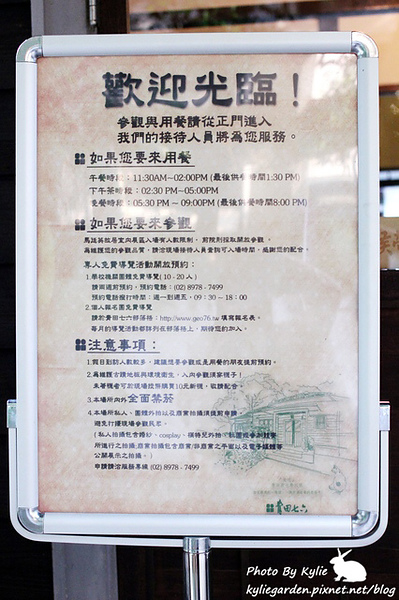 歡迎光臨！
參觀與用餐請從正門進入
我們的接待人員將為您服務。
如果您要來用餐
午餐時段：11:30AM~02:00PM (最後供餐時間1:30 PM)
下午茶時段：02:30 PM~05:00PM
晚餐時段：05:30 PM ~ 09:00PM (最後供餐時間8:00 PM)
如果您要來參觀
馬廷英故居室內展區入場有人數限制，
為維護您的參觀品質，請洽現場接待人員查詢可入場時間，感謝您的配合。
專人免費導覽活動開放預約：
1.學校機關團體免費導覽(10 - 20 人)
請兩週前預約，預約電話：(02) 8978 - 7499
預約電話撥打時間：週一到週五，09 : 30 ~ 18 : 00
2.個人報名團免費導覽
請於青田七六部落格：http://www.geo76.tw 填寫報名表。
每月的導覽活動都詳列在部落格上，期待您的加入。
注意事項：
1.假日到訪人數較多，建議想要參觀或是用餐的朋友提前預約。
2.為維護古蹟地板與環境衛生，入內參觀須穿襪子！
未著襪者可於現場控預購買10元新襪，敬請配合。
3.本場所內外全面禁菸
4.本場所私人、團體外拍以及商業拍攝須提前申請
避免打擾現場參觀民眾。
公開展示之拍攝。)
申請請洽服務專線 (02) 8978 - 7499
青田七六
Photo By Kylie
kyliegarden.pixnet.net/blog